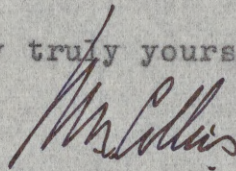 truly yours
Collins